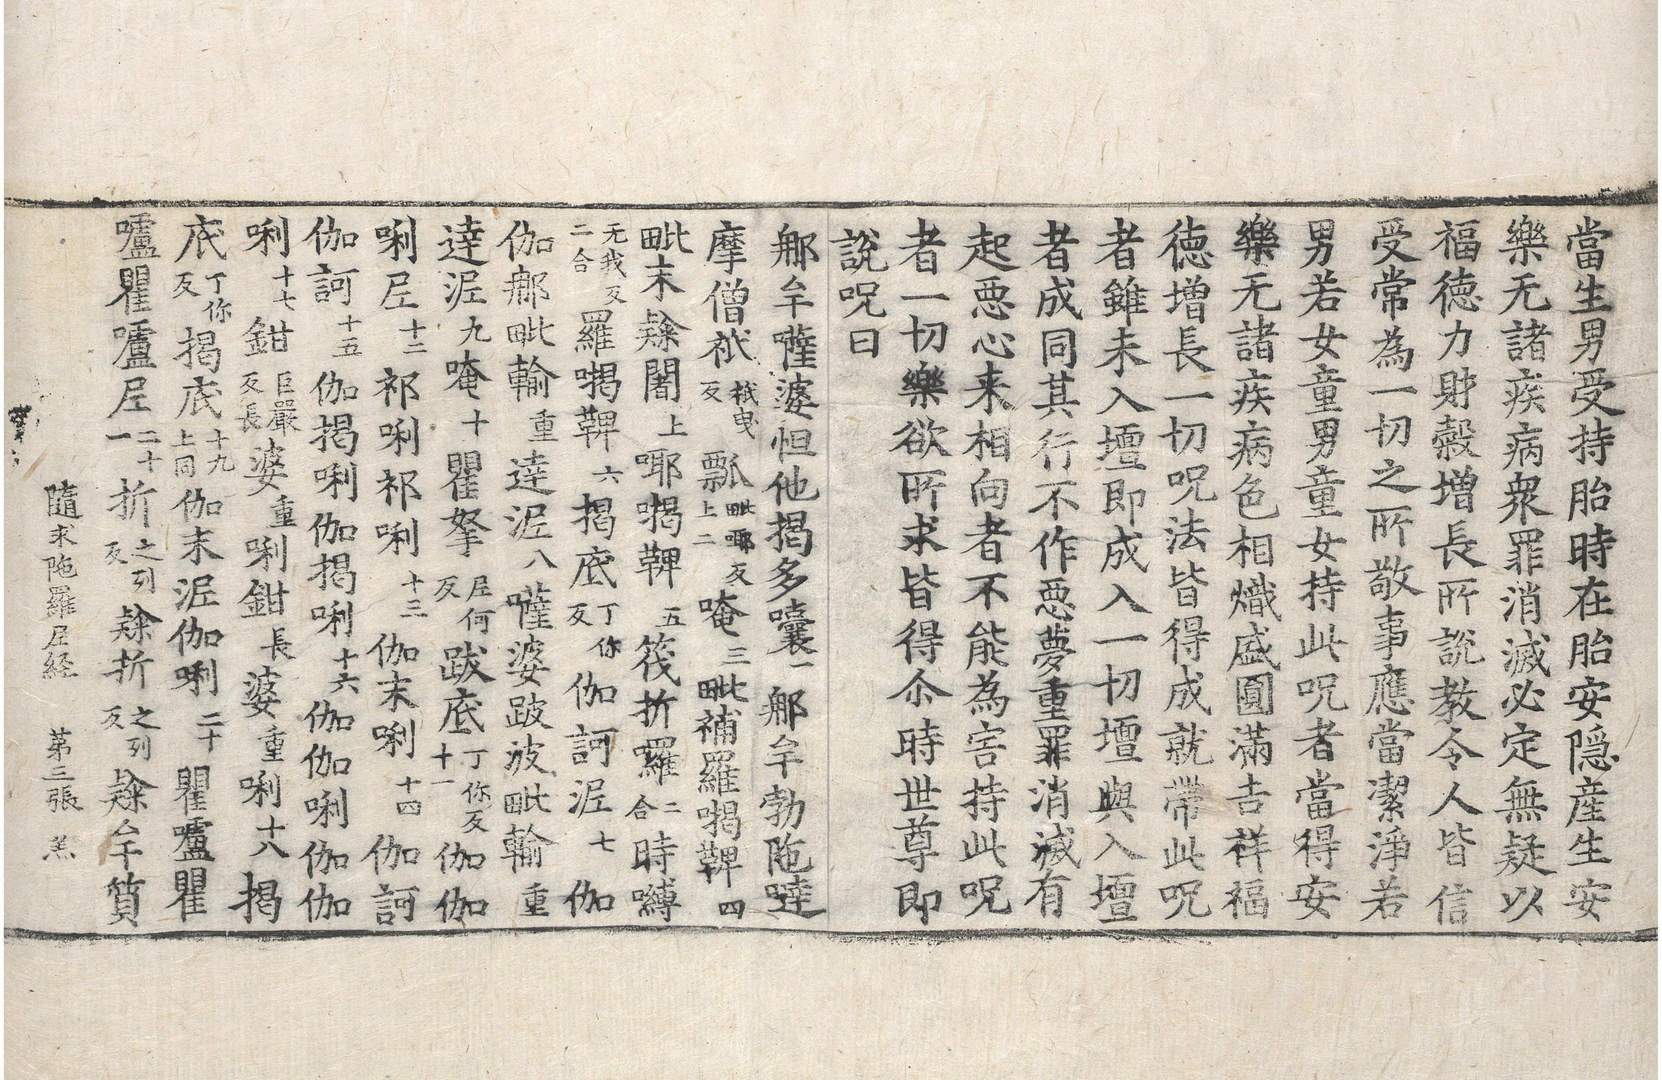 當生男受持胎時在胎安隠産生安
樂无諸疾病衆罪消滅必定無疑以
福徳力財糓増長所説教令人皆信
受常為一切之所敬事應當潔淨若
男若女童男童女持此呪者當得安
樂无諸疾病色相熾盛圓滿吉祥福
徳増長一切呪法皆得成就帶此呪
者雖未入壇即成入一切壇與入壇
者成同其行不作惡夢重罪消滅有
起惡心来相向者不能為害持此呪
者一切樂欲所求皆得尒時世尊即
説呪曰
那牟薩婆怛他揭多囊一那牟勃陁噠
摩僧祇祇曳反瓢毗喥反上二唵三毗補羅揭鞞四
毗末㘑闍上耶揭鞞五筏折囉二合時嚩
无我反二合羅揭鞞六揭底丁你反伽訶泥七伽
伽那毗輸重達泥八薩婆跛波毗輸重
達泥九唵十瞿拏尼何反跋底丁你反十一伽伽
唎尼十二祁唎祁唎十三伽末唎十四伽訶
伽訶十五伽揭唎伽揭唎十六伽伽唎伽伽
唎十七鉗巨嚴反長婆重唎鉗長婆重唎十八揭
底丁你反揭底十九上同伽末泥伽唎二十瞿嚧瞿
嚧瞿嚧尼二十一折之列反㘑折之列反㘑牟質
隨求陁羅尼経　苐三張　羔